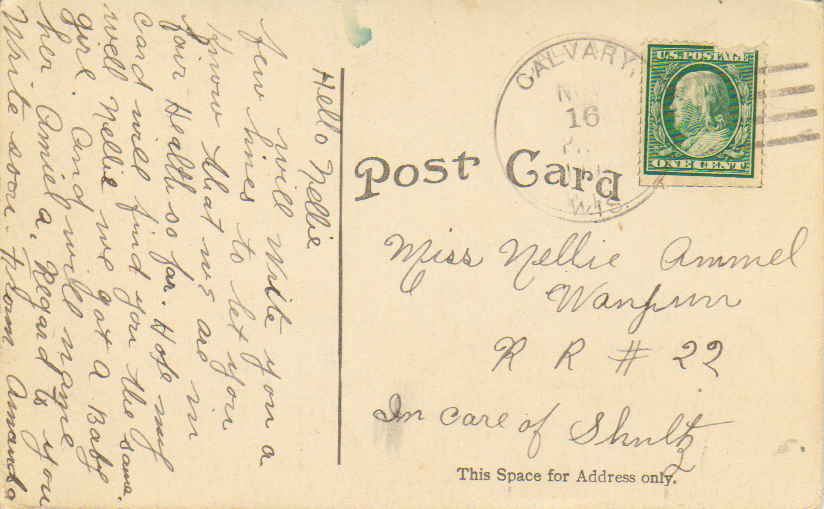 Hello Nellie
will write you a
few lines to let you
know that we are in
fair Health so far. Hope my
card will find you the same.
well Nellie we got a Baby
girl. And will name
her Amiela. Regard to you
Write soon. From Amanda
CALVARY.
16
WIS.
U.S. POSTAGE
ONE CENT
Post Card
Miss Nellie Ammel
Waupun
R R # 22
In care of Shultz
This Space for Address only.